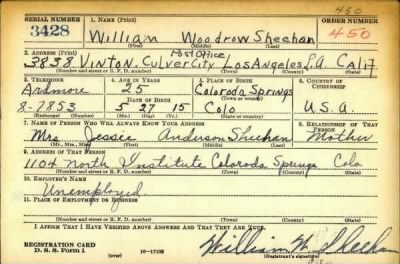 450
SERIAL NUMBER 1. NAME (Print) ORDER NUMBER
3428 William Woodrow Sheehan 450
(First) (Middle) (Last)
Post Office
2. ADDRESS (Print)
3838 Vinton. Culver City Los Angeles L.A. Calif
(Number and street or R. F. D. number) (Town) (County) (State)
3. TELEPHONE 4. AGE IN YEARS 5. PLACE OF BIRTH 6. COUNTRY OF CITIZENSHIP
Ardmore 25 Coloroda Springs
DATE OF BIRTH (Town or county)
8-7853 5 27 15 Colo. U.S.A.
(Exchange) (Number) (Mo.) (Day) (Yr.) (State or country)
7. NAME OF PERSON WHO WILL ALWAYS KNOW YOUR ADDRESS 8. RELATIONSHIP OF THAT PERSON
Mrs Jessie Anderson Sheehan Mother
(Mr., Mrs., Miss) (First) (Middle) (Last)
9. ADDRESS OF THAT PERSON
1104 North Institute Coloroda Springs Colo
(Number and street or R. F. D. number) (Town) (County) (State)
10. EMPLOYER'S NAME
Unemployed
11. PLACE OF EMPLOYMENT OR BUSINESS
(Number and street or R. F. D. number) (Town) (County) (State)
I AFFIRM THAT I HAVE VERIFIED ABOVE ANSWERS AND THAT THEY ARE TRUE.
REGISTRATION CARD
D. S. S. Form 1 (over) 16-17105 William W. Sheehan
(Registrant's signature)